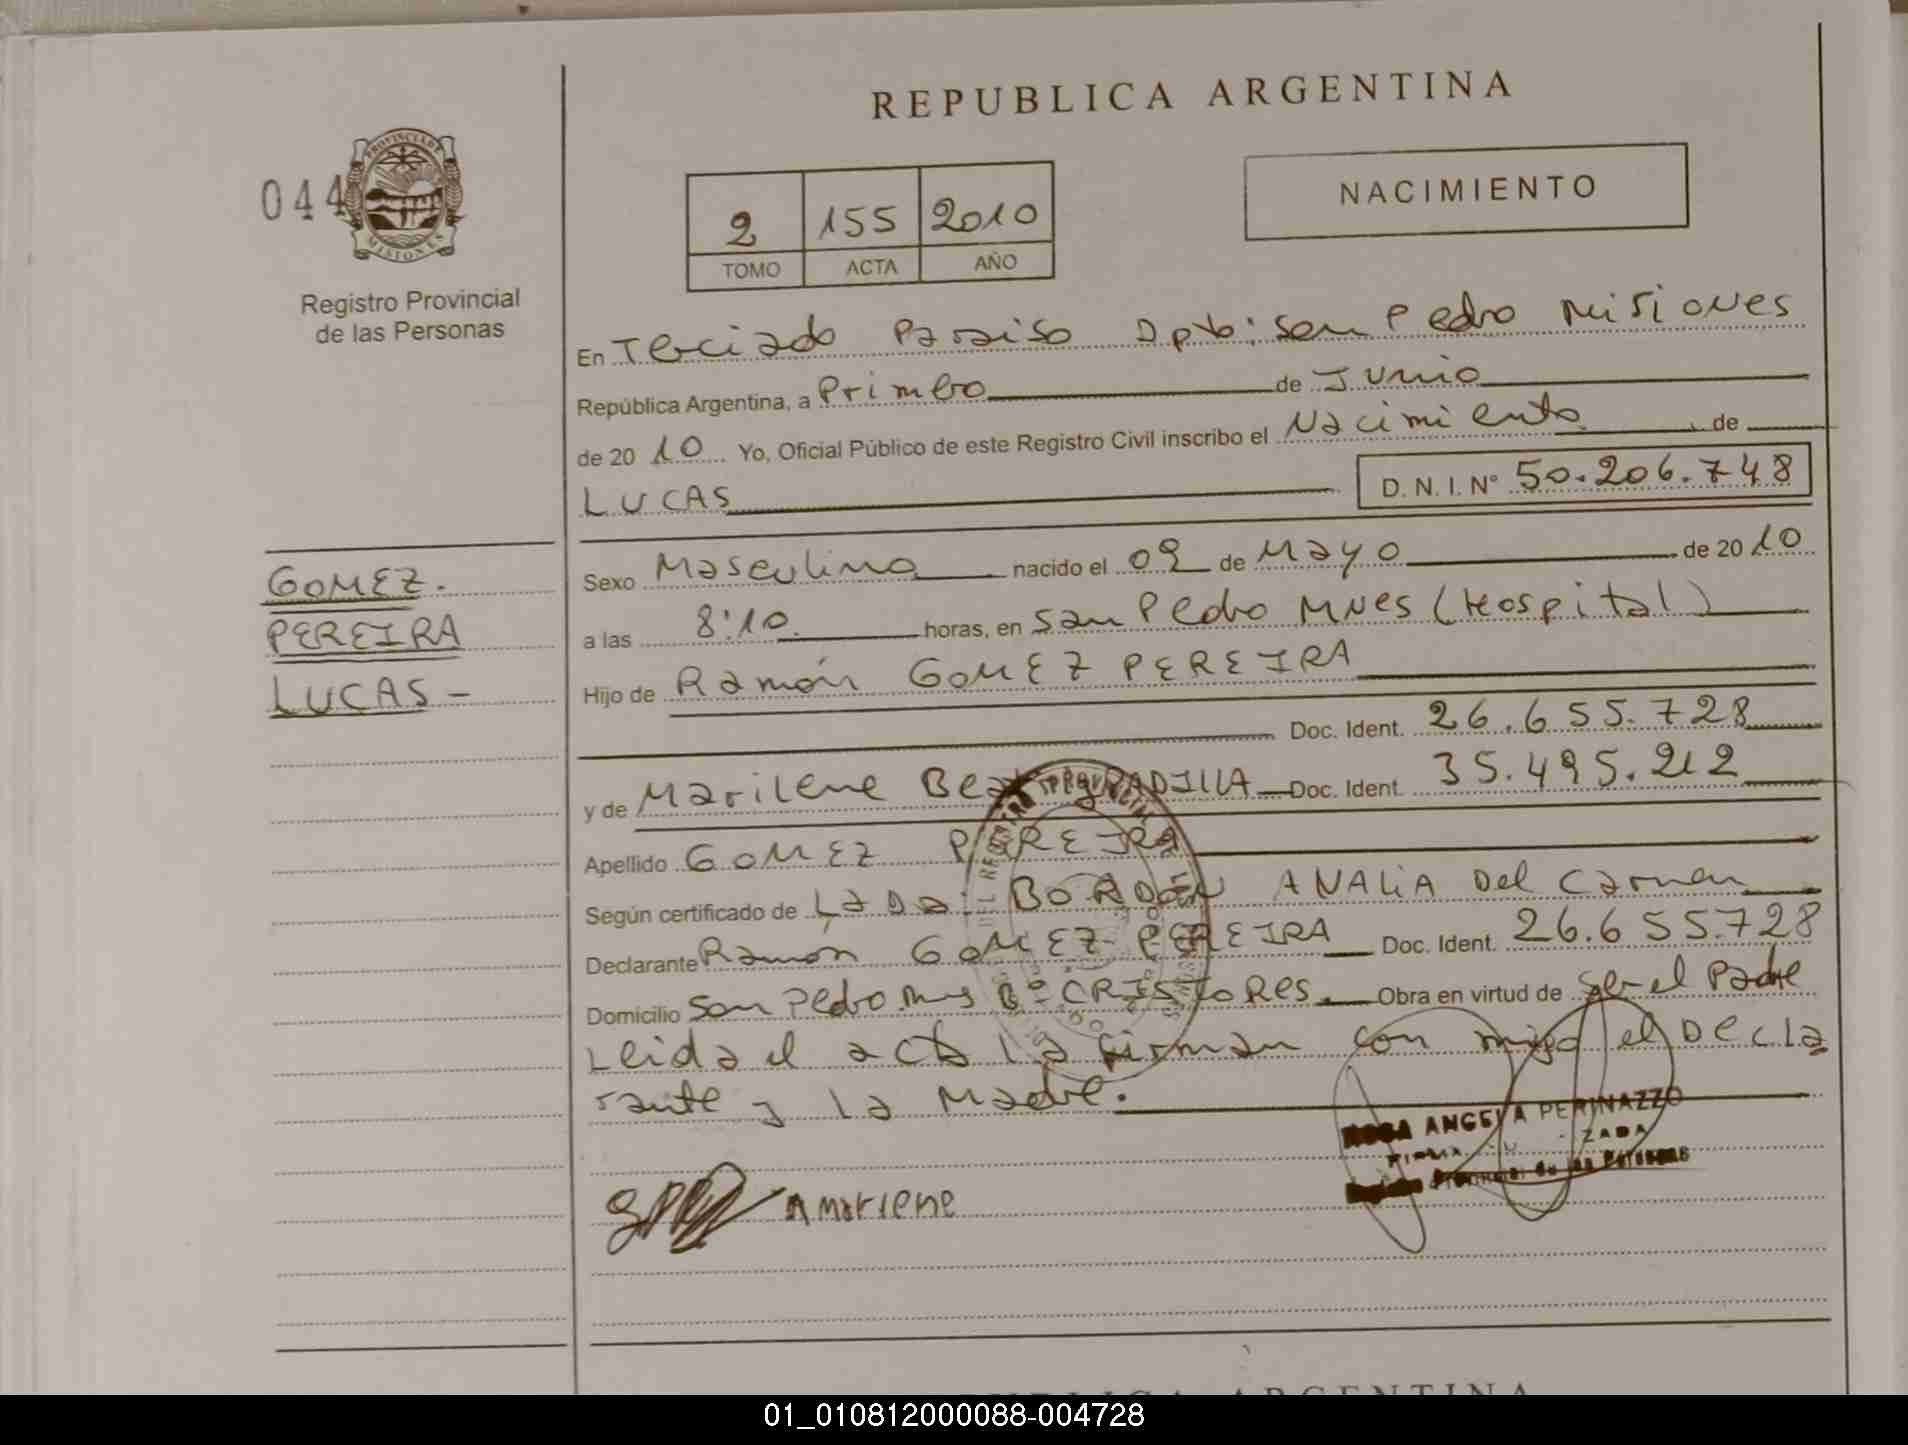 REPUBLICA ARGENTINA
044
PROVINCIA DE
MISIONES
Registro Provincial
de las Personas
2 155 2010
TOMO ACTA AÑO
NACIMIENTO
En Terciado Paraiso Dpto: San Pedro Misiones
República Argentina, a Primero de Junio
de 2010 Yo, Oficial Público de este Registro Civil inscribo el Nacimiento de
LUCAS D. N. I. N° 50.206.748
Sexo Masculino nacido el 09 de Mayo de 2010
a las 8:10 horas, en San Pedro Mnes (Hospital)
Hijo de Ramón GOMEZ PEREIRA
Doc. Ident. 26.655.728
y de Marilene PADILLA Doc. Ident. 35.495.212
Apellido GOMEZ PEREIRA
Según certificado de La Da: BORDON ANALIA Del Carmen
Declarante Ramón GOMEZ PEREIRA Doc. Ident. 26.655.728
Domicilio San Pedro Mnes B° CRISTO RES. Obra en virtud de ser el Padre
Leida el acta la firman con migo el Decla
rante y la Madre.
GOMEZ.
PEREIRA
LUCAS -
ROSA ANGELA PERINAZZO
Registro Provincial de las Personas
Marlene
REPUBLICA ARGENTINA
01_010812000088-004728